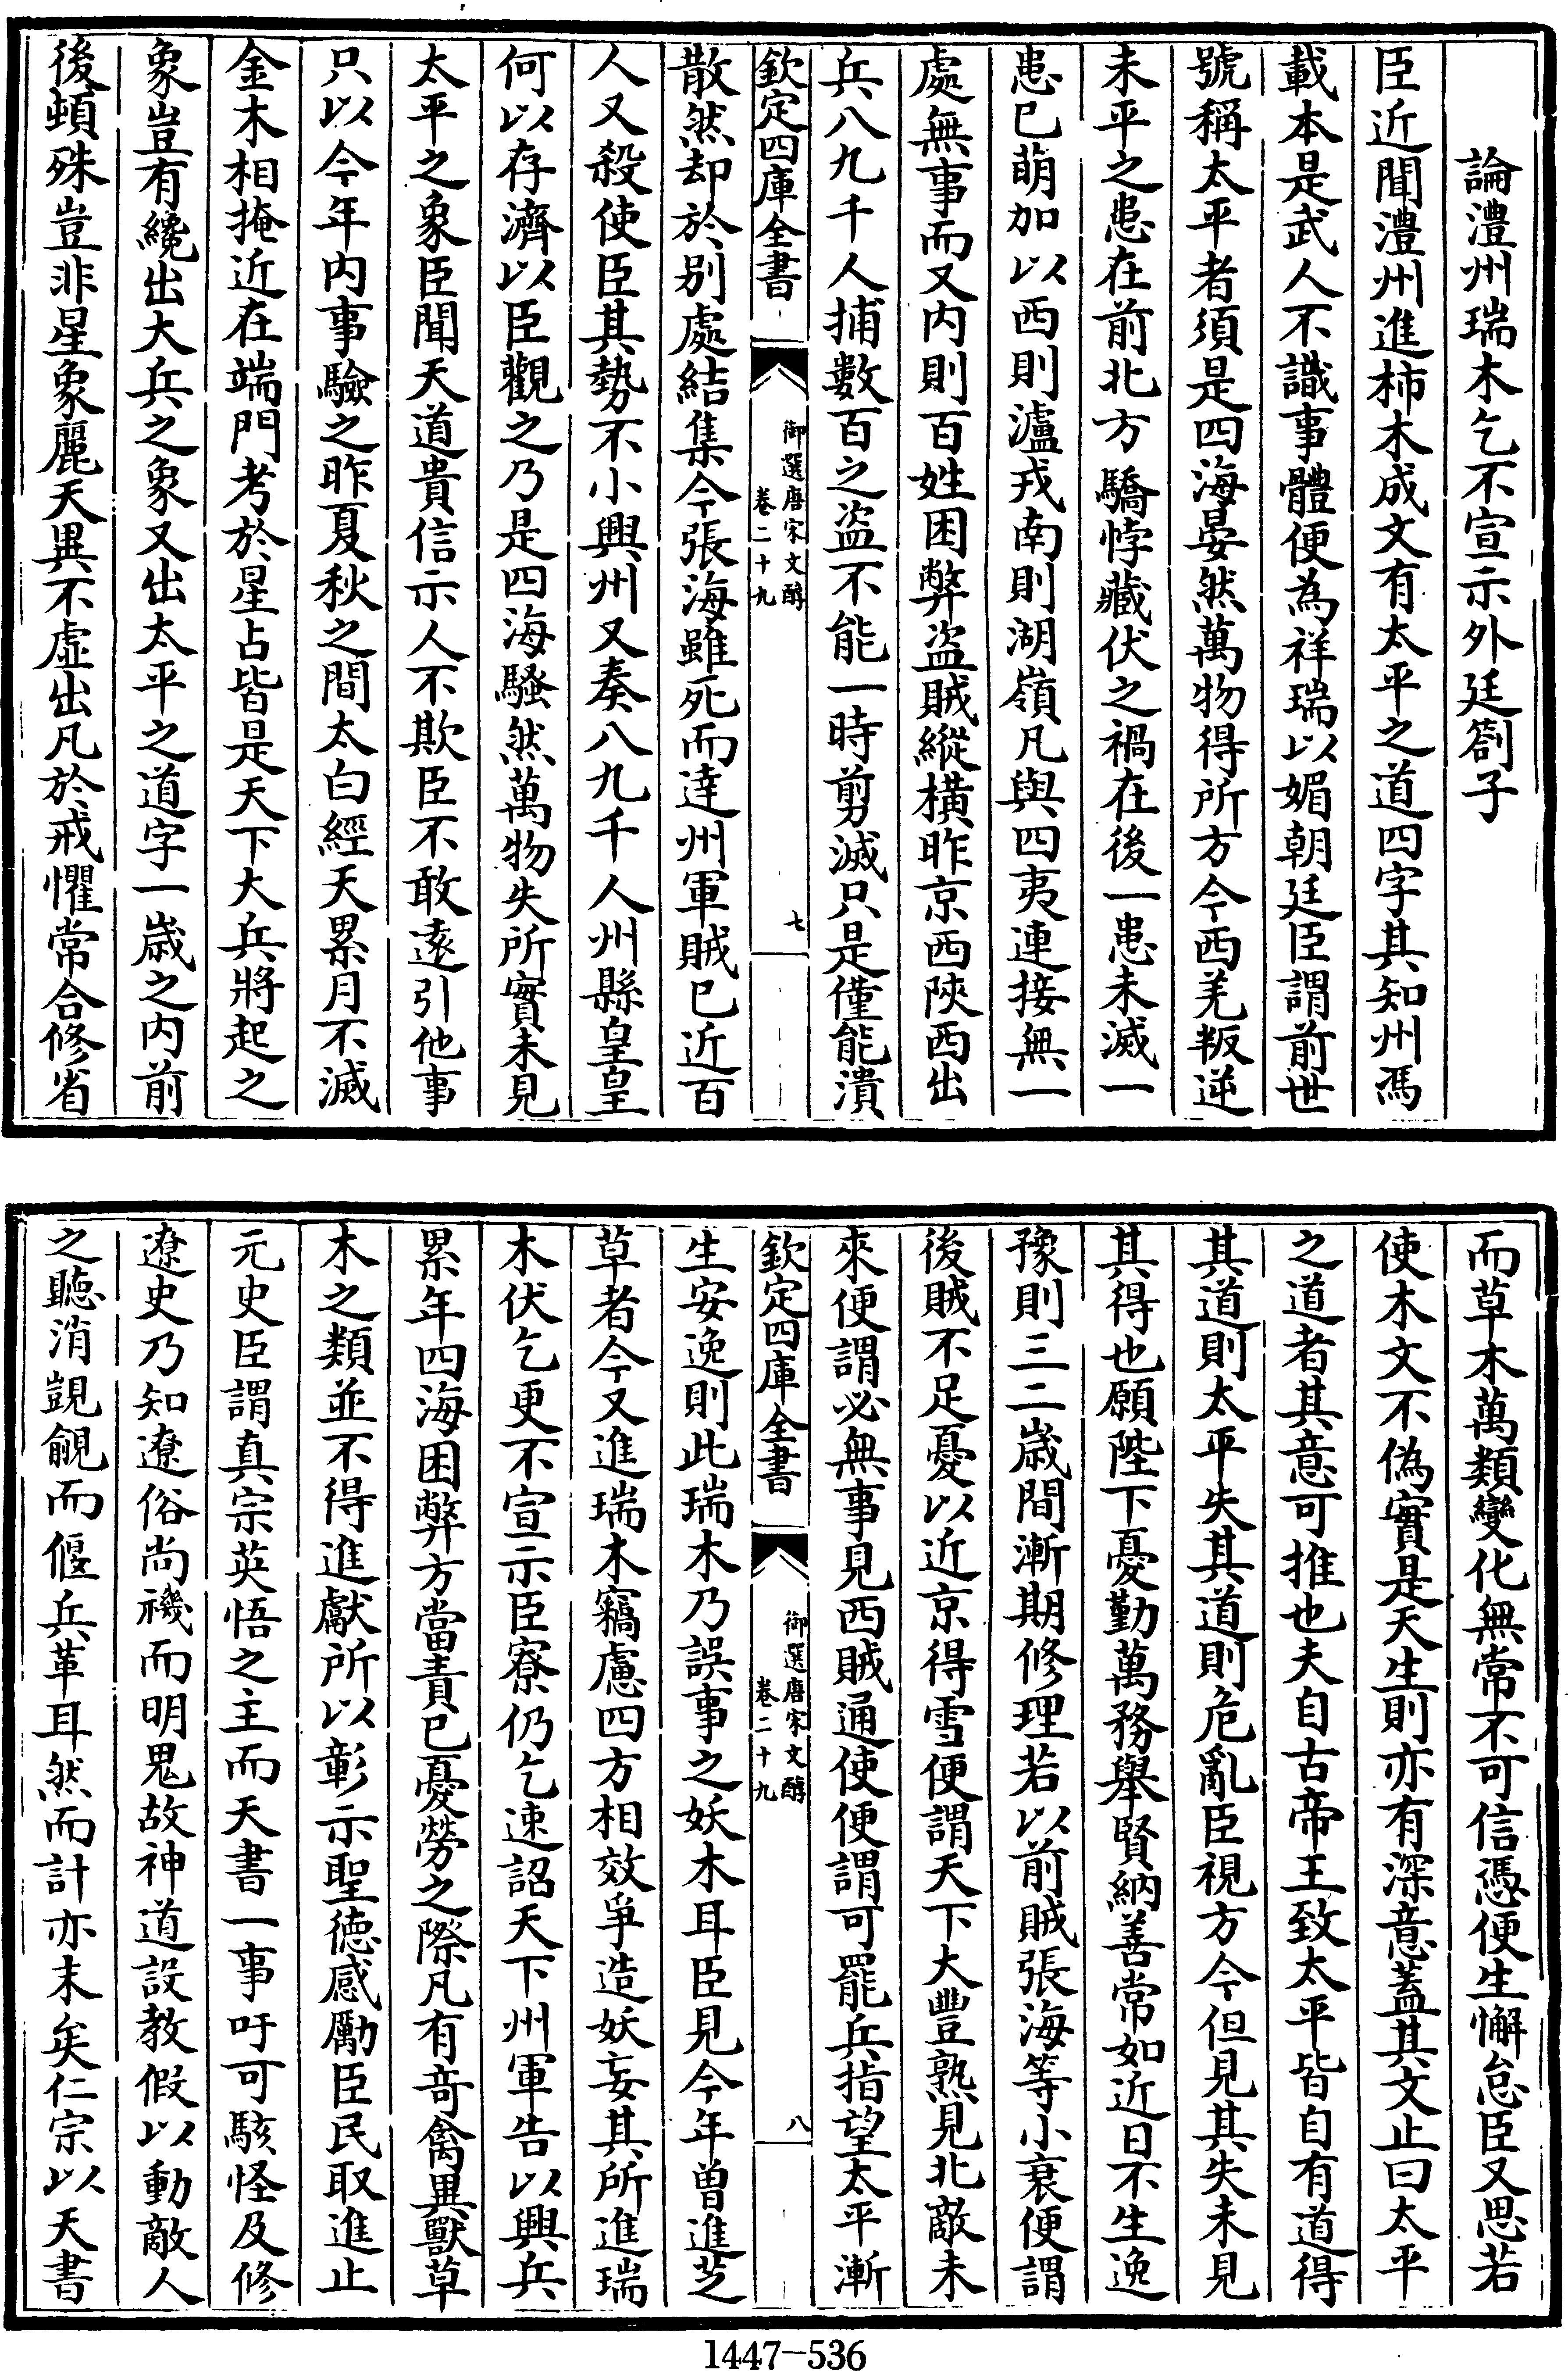 論澧州瑞木乞不宣示外廷劄子
臣近聞澧州進柿木成文有太平之道四字其知州馮
載本是武人不識事體便為祥瑞以媚朝廷臣謂前世
號稱太平者須是四海晏然萬物得所方今西羌叛逆
未平之患在前北方驕悖藏伏之禍在後一患未滅一
患已萌加以西則瀘戎南則湖嶺凡與四夷連接無一
處無事而又内則百姓困弊盜賊縱橫昨京西陝西出
兵八九千人捕數百之盜不能一時剪滅只是僅能潰
欽定四庫全書
御選唐宋文醇
卷二十九
七
散然却於别處結集今張海雖死而達州軍賊已近百
人又殺使臣其勢不小興州又奏八九千人州縣皇皇
何以存濟以臣觀之乃是四海騷然萬物失所實未見
太平之象臣聞天道貴信示人不欺臣不敢遠引他事
只以今年内事驗之昨夏秋之間太白經天累月不滅
金木相掩近在端門考於星占皆是天下大兵將起之
象豈有纔出大兵之象又出太平之道字一嵗之内前
後頓殊豈非星象麗天異不虚出凡於戒懼常合修省
而草木萬類變化無常不可信憑便生懈怠臣又思若
使木文不偽實是天生則亦有深意蓋其文止曰太平
之道者其意可推也夫自古帝王致太平皆自有道得
其道則太平失其道則危亂臣視方今但見其失未見
其得也願陛下憂勤萬務舉賢納善常如近日不生逸
豫則三二嵗間漸期修理若以前賊張海等小衰便謂
後賊不足憂以近京得雪便謂天下大豐熟見北敵未
來便謂必無事見西賊通使便謂可罷兵指望太平漸
欽定四庫全書
御選唐宋文醇
卷二十九
八
生安逸則此瑞木乃誤事之妖木耳臣見今年曾進芝
草者今又進瑞木竊慮四方相效爭造妖妄其所進瑞
木伏乞更不宣示臣寮仍乞速詔天下州軍告以興兵
累年四海困弊方當責已憂勞之際凡有奇禽異獸草
木之類並不得進獻所以彰示聖德感勵臣民取進止
元史臣謂真宗英悟之主而天書一事吁可駭怪及修
遼史乃知遼俗尚禨而明鬼故神道設教假以動敵人
之聽消覬覦而偃兵革耳然而計亦末矣仁宗以天書
1447-536